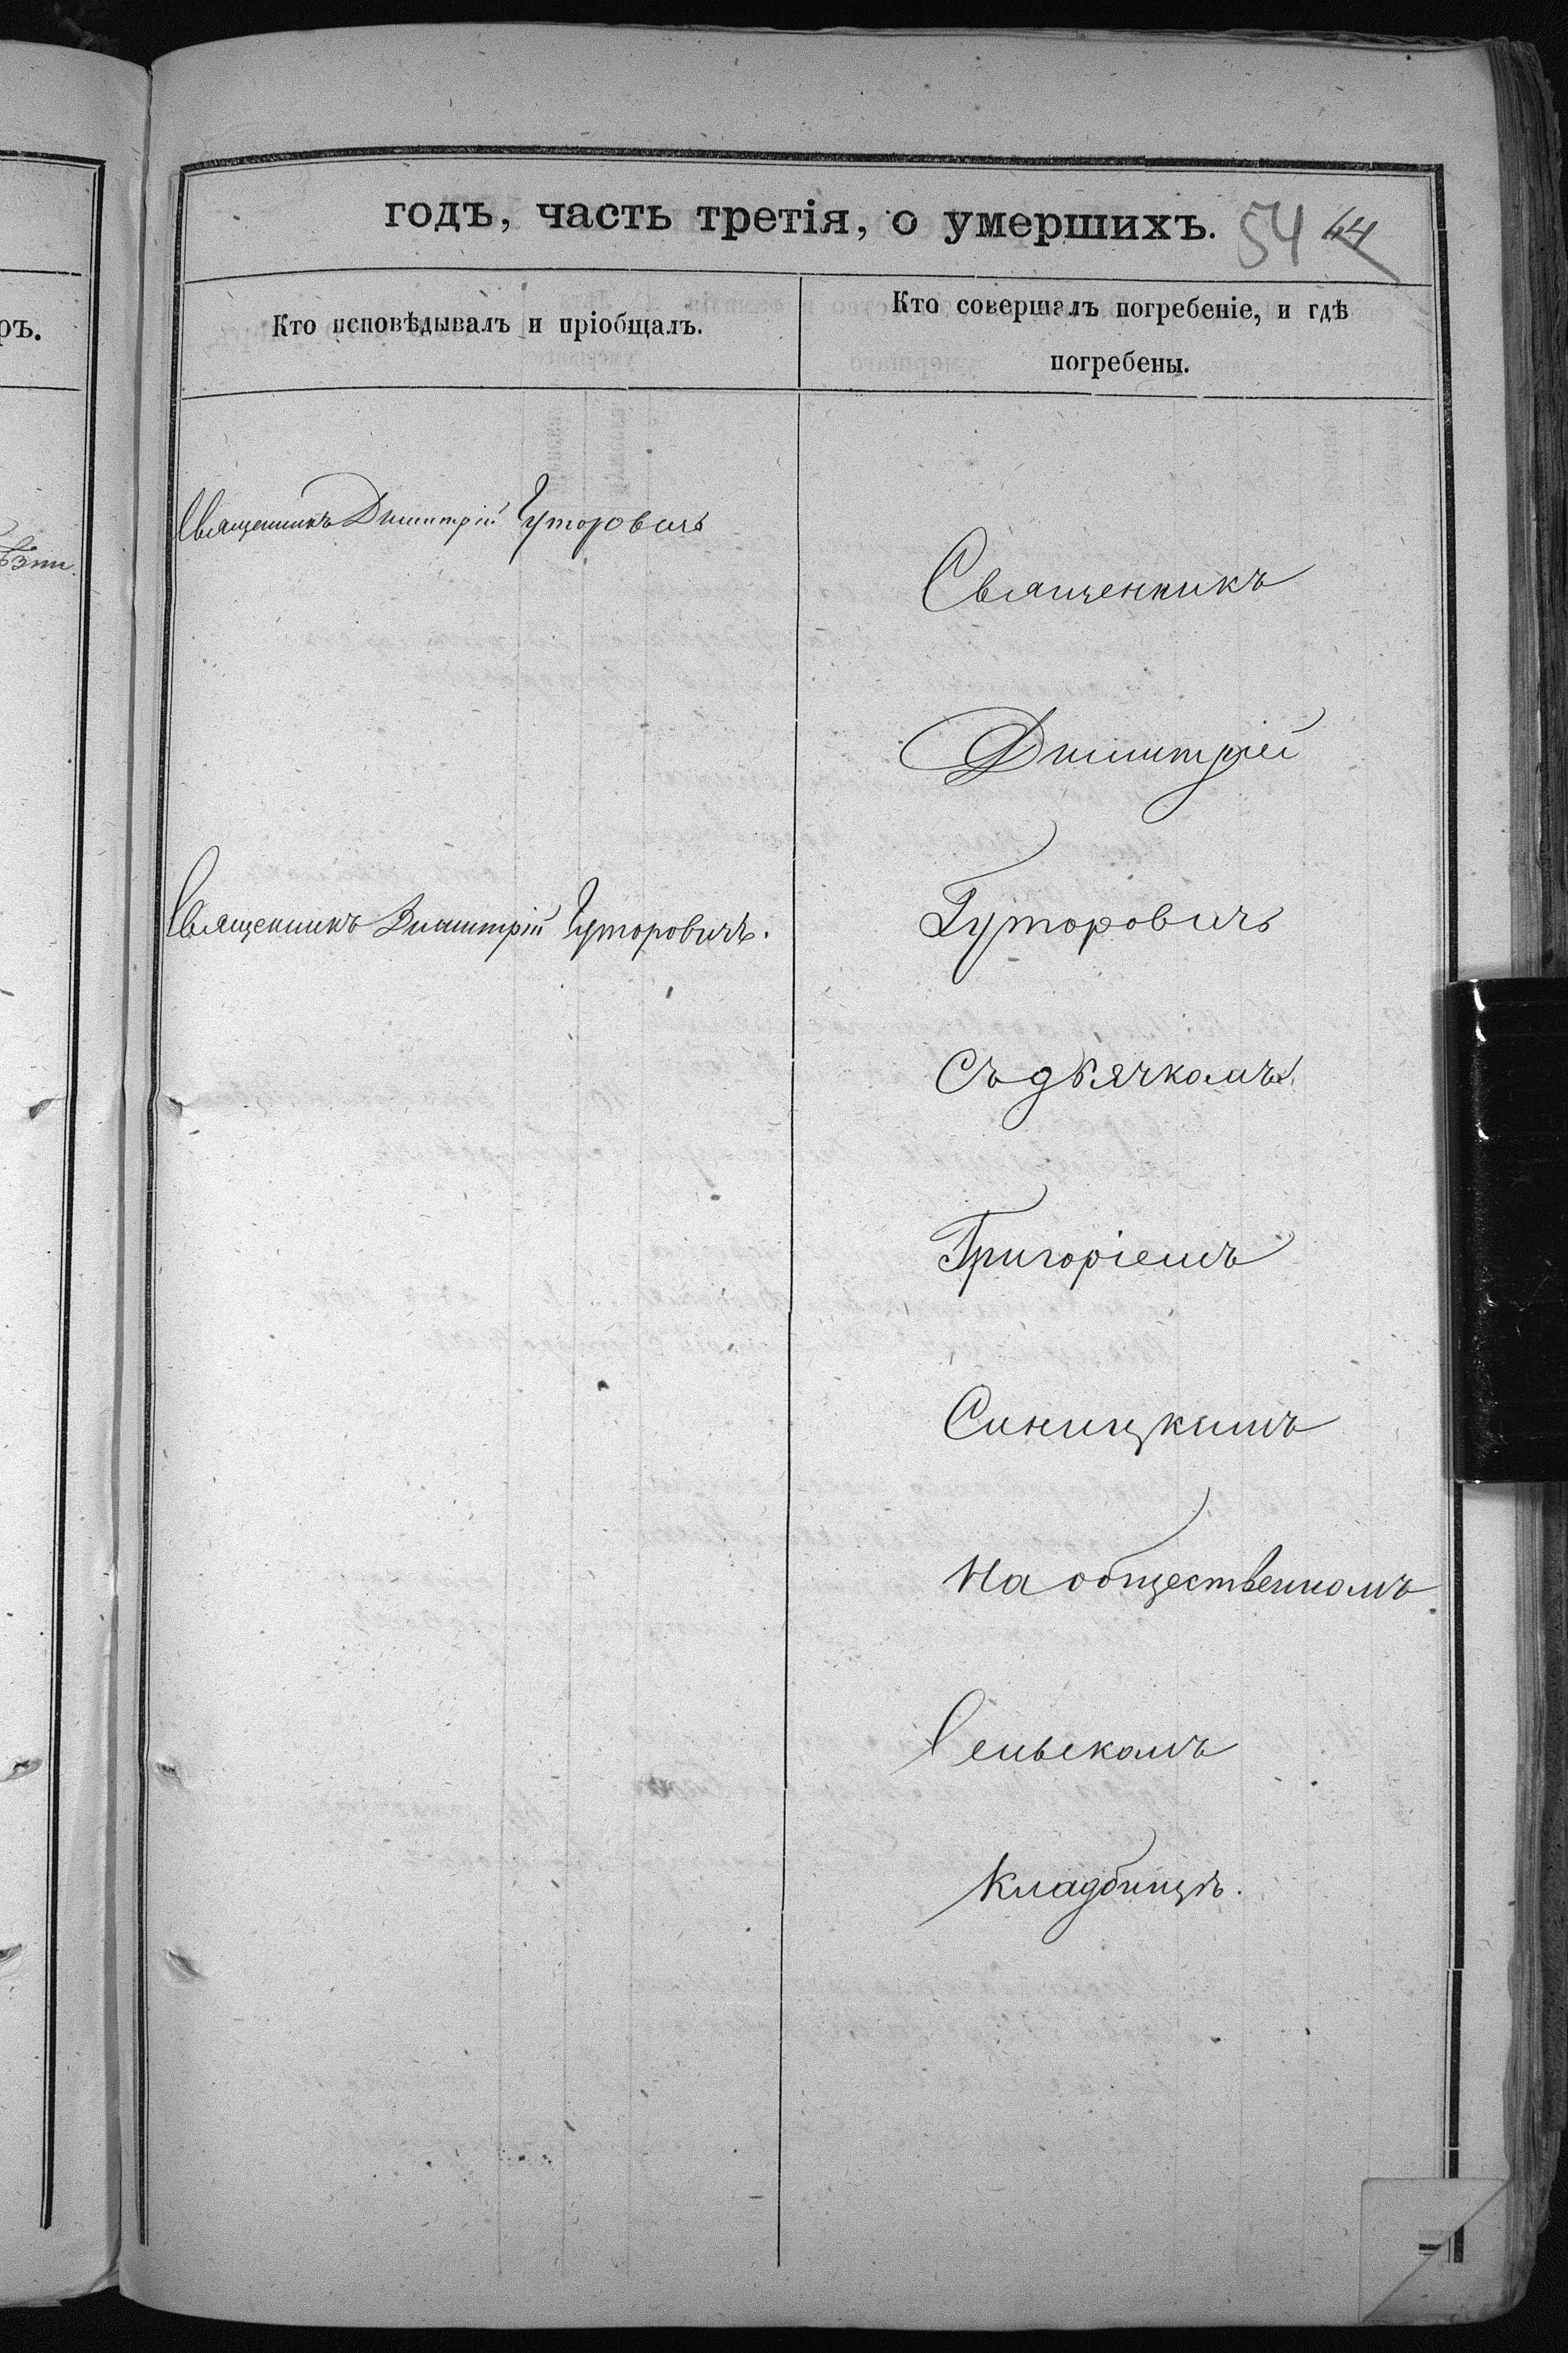 годъ, часть третія, о умершихъ. 54 44
Кто исповѣдывалъ и пріобщалъ.
Кто совершалъ погребеніе, и гдѣ
погребены.
Священникъ Димитрій Гуторовичъ
Священникъ
Димитрій
Священникъ Димитрій Гуторовичъ.
Гуторовичъ
Съ дьячкомъ
Григоріемъ
Синицкимъ
На общественномъ
Сельскомъ
Кладбищѣ.
ръ.